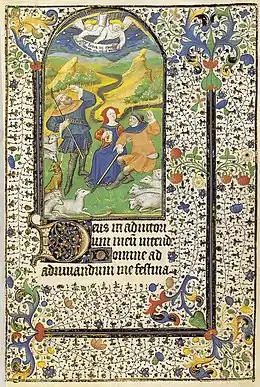 Deus in adiutori
um meū intend
Domine ad
adiuuandum me festina